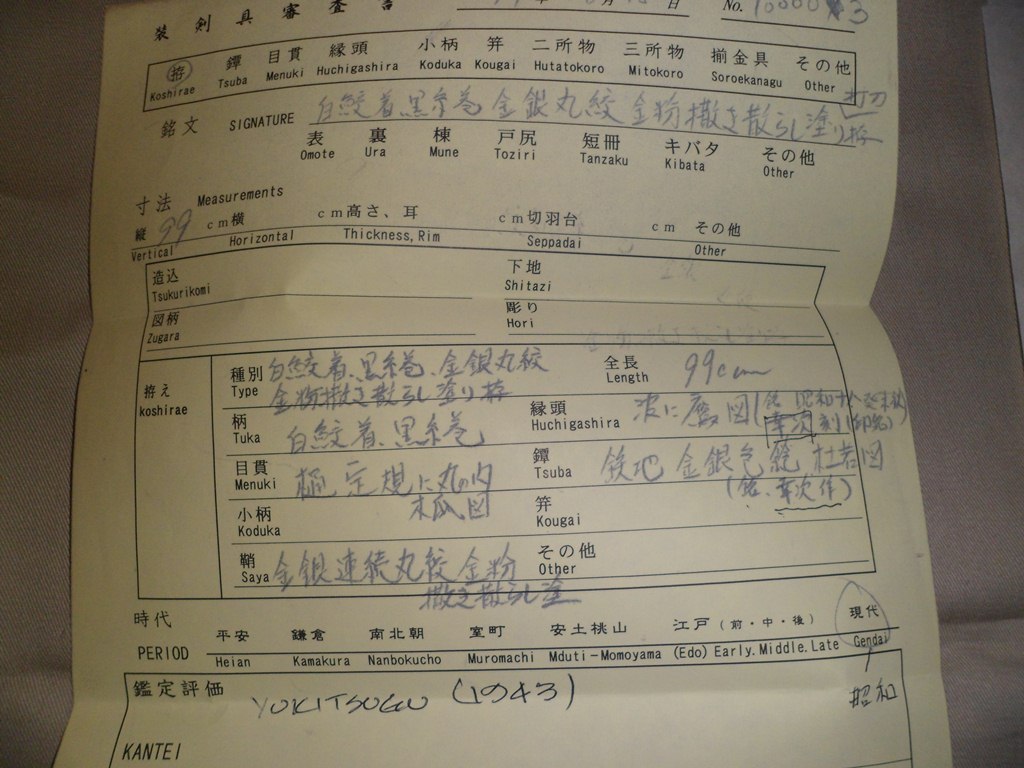 装剣具審査書
年 月 日 No. 10000
拵 鐔 目貫 縁頭 小柄 笄 二所物 三所物 揃金具 その他
Koshirae Tsuba Menuki Huchigashira Koduka Kougai Hutatokoro Mitokoro Soroekanagu Other
銘文 SIGNATURE 白鮫着黒糸巻金銀丸絞金粉撒き散らし塗り打刀拵
表 裏 棟 戸尻 短冊 キバタ その他
Omote Ura Mune Toziri Tanzaku Kibata Other
寸法 Measurements
縦 99 cm横 cm高さ、耳 cm切羽台 cm その他
Vertical Horizontal Thickness,Rim Seppadai Other
造込 下地
Tsukurikomi Shitazi
図柄 彫り
Zugara Hori
拵え
koshirae
種別 白鮫着、黒糸巻、金銀丸絞 全長 99cm
Type 金粉撒き散らし塗り拵 Length
柄 白鮫着、黒糸巻 縁頭 波に鷹図
Tuka Huchigashira 幸次
目貫 定規に丸の内 鐔 鉄地 金銀色絵 杜若図
Menuki 木瓜図 Tsuba (銘、幸次作)
小柄 笄
Koduka Kougai
鞘 金銀連続丸絞金粉 その他
Saya 撒き散らし塗 Other
時代 平安 鎌倉 南北朝 室町 安土桃山 江戸(前・中・後) 現代
PERIOD Heian Kamakura Nanbokucho Muromachi Mduti-Momoyama (Edo) Early.Middle.Late Gendai
鑑定評価 YUKITSUGU (1943) 昭和
KANTEI